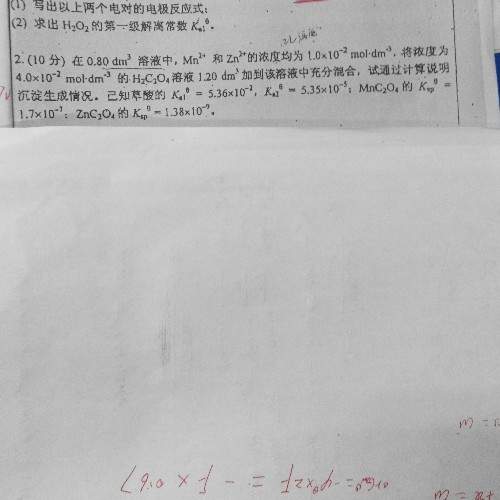 (1) 写出以上两个电对的电极反应式;
(2) 求出 H₂O₂ 的第一级解离常数 Kₐ₁θ。
2. (10 分) 在 0.80 dm³ 溶液中,Mn²⁺ 和 Zn²⁺的浓度均为 1.0×10⁻² mol·dm⁻³,将浓度为
4.0×10⁻² mol·dm⁻³ 的 H₂C₂O₄ 溶液 1.20 dm³ 加到该溶液中充分混合,试通过计算说明
沉淀生成情况。已知草酸的 Kₐ₁θ = 5.36×10⁻², Kₐ₂θ = 5.35×10⁻⁵; MnC₂O₄ 的 Kₛₚθ =
1.7×10⁻⁷; ZnC₂O₄ 的 Kₛₚθ =1.38×10⁻⁹。